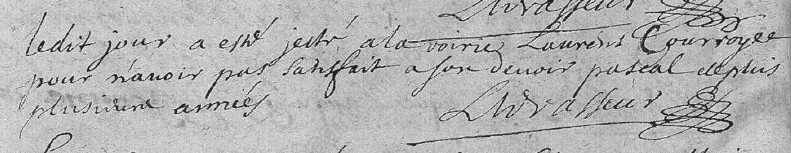 Levasseur
ledit jour a esté jecté a la voirie Laurens Courroyee
pour n'avoir pas satisfait a son devoir pascal depuis
plusieurs années
Levasseur